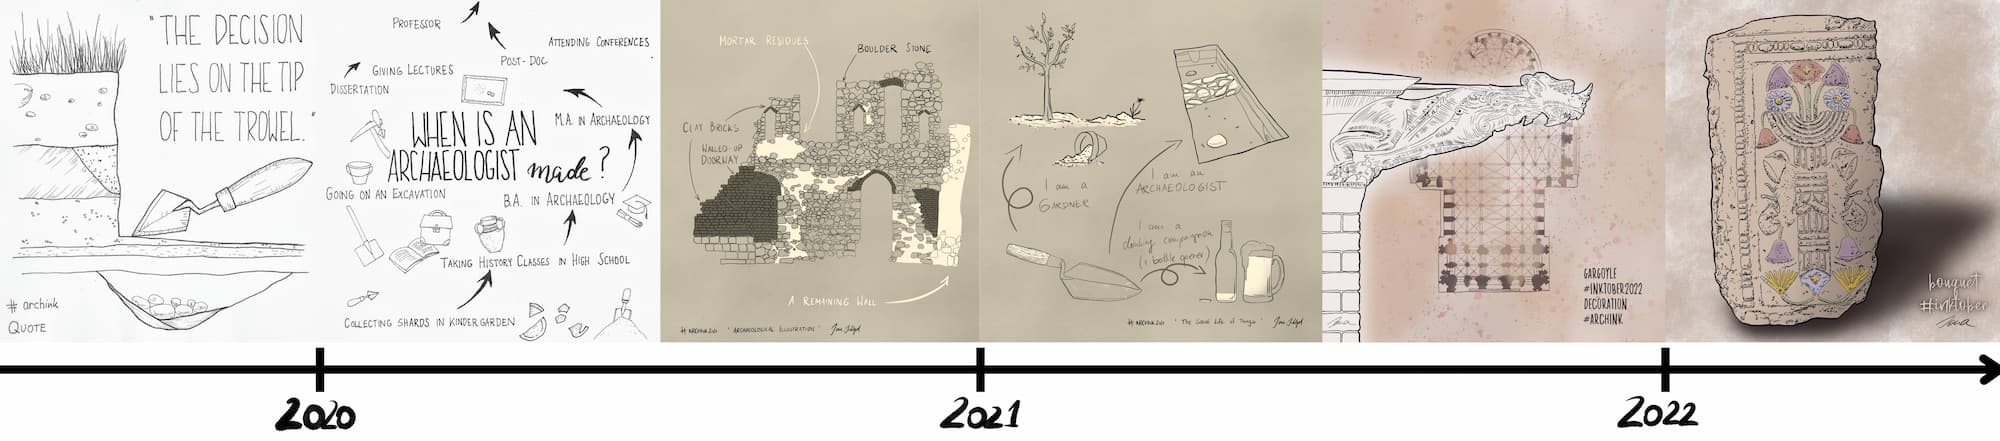 "THE DECISION
LIES ON THE TIP
OF THE TROWEL."
# archink
QUOTE
PROFESSOR
ATTENDING CONFERENCES
POST-DOC
GIVING LECTURES
DISSERTATION
WHEN IS AN
ARCHAEOLOGIST made?
M.A. IN ARCHAEOLOGY
GOING ON AN EXCAVATION
B.A. IN ARCHAEOLOGY
TAKING HISTORY CLASSES IN HIGH SCHOOL
COLLECTING SHARDS IN KINDERGARDEN
MORTAR RESIDUES
BOULDER STONE
CLAY BRICKS
WALLED-UP
DOORWAY
A REMAINING WALL
# ARCHINK2021 'ARCHAEOLOGICAL ILLUSTRATION'
I am a
GARDNER
I am an
ARCHAEOLOGIST
I am a
drinking compagnon
(& bottle opener)
# ARCHINK2021 'The Social Life of Things'
GARGOYLE
#INKTOBER2022
DECORATION
#ARCHINK
bouquet
#inktober
2020
2021
2022